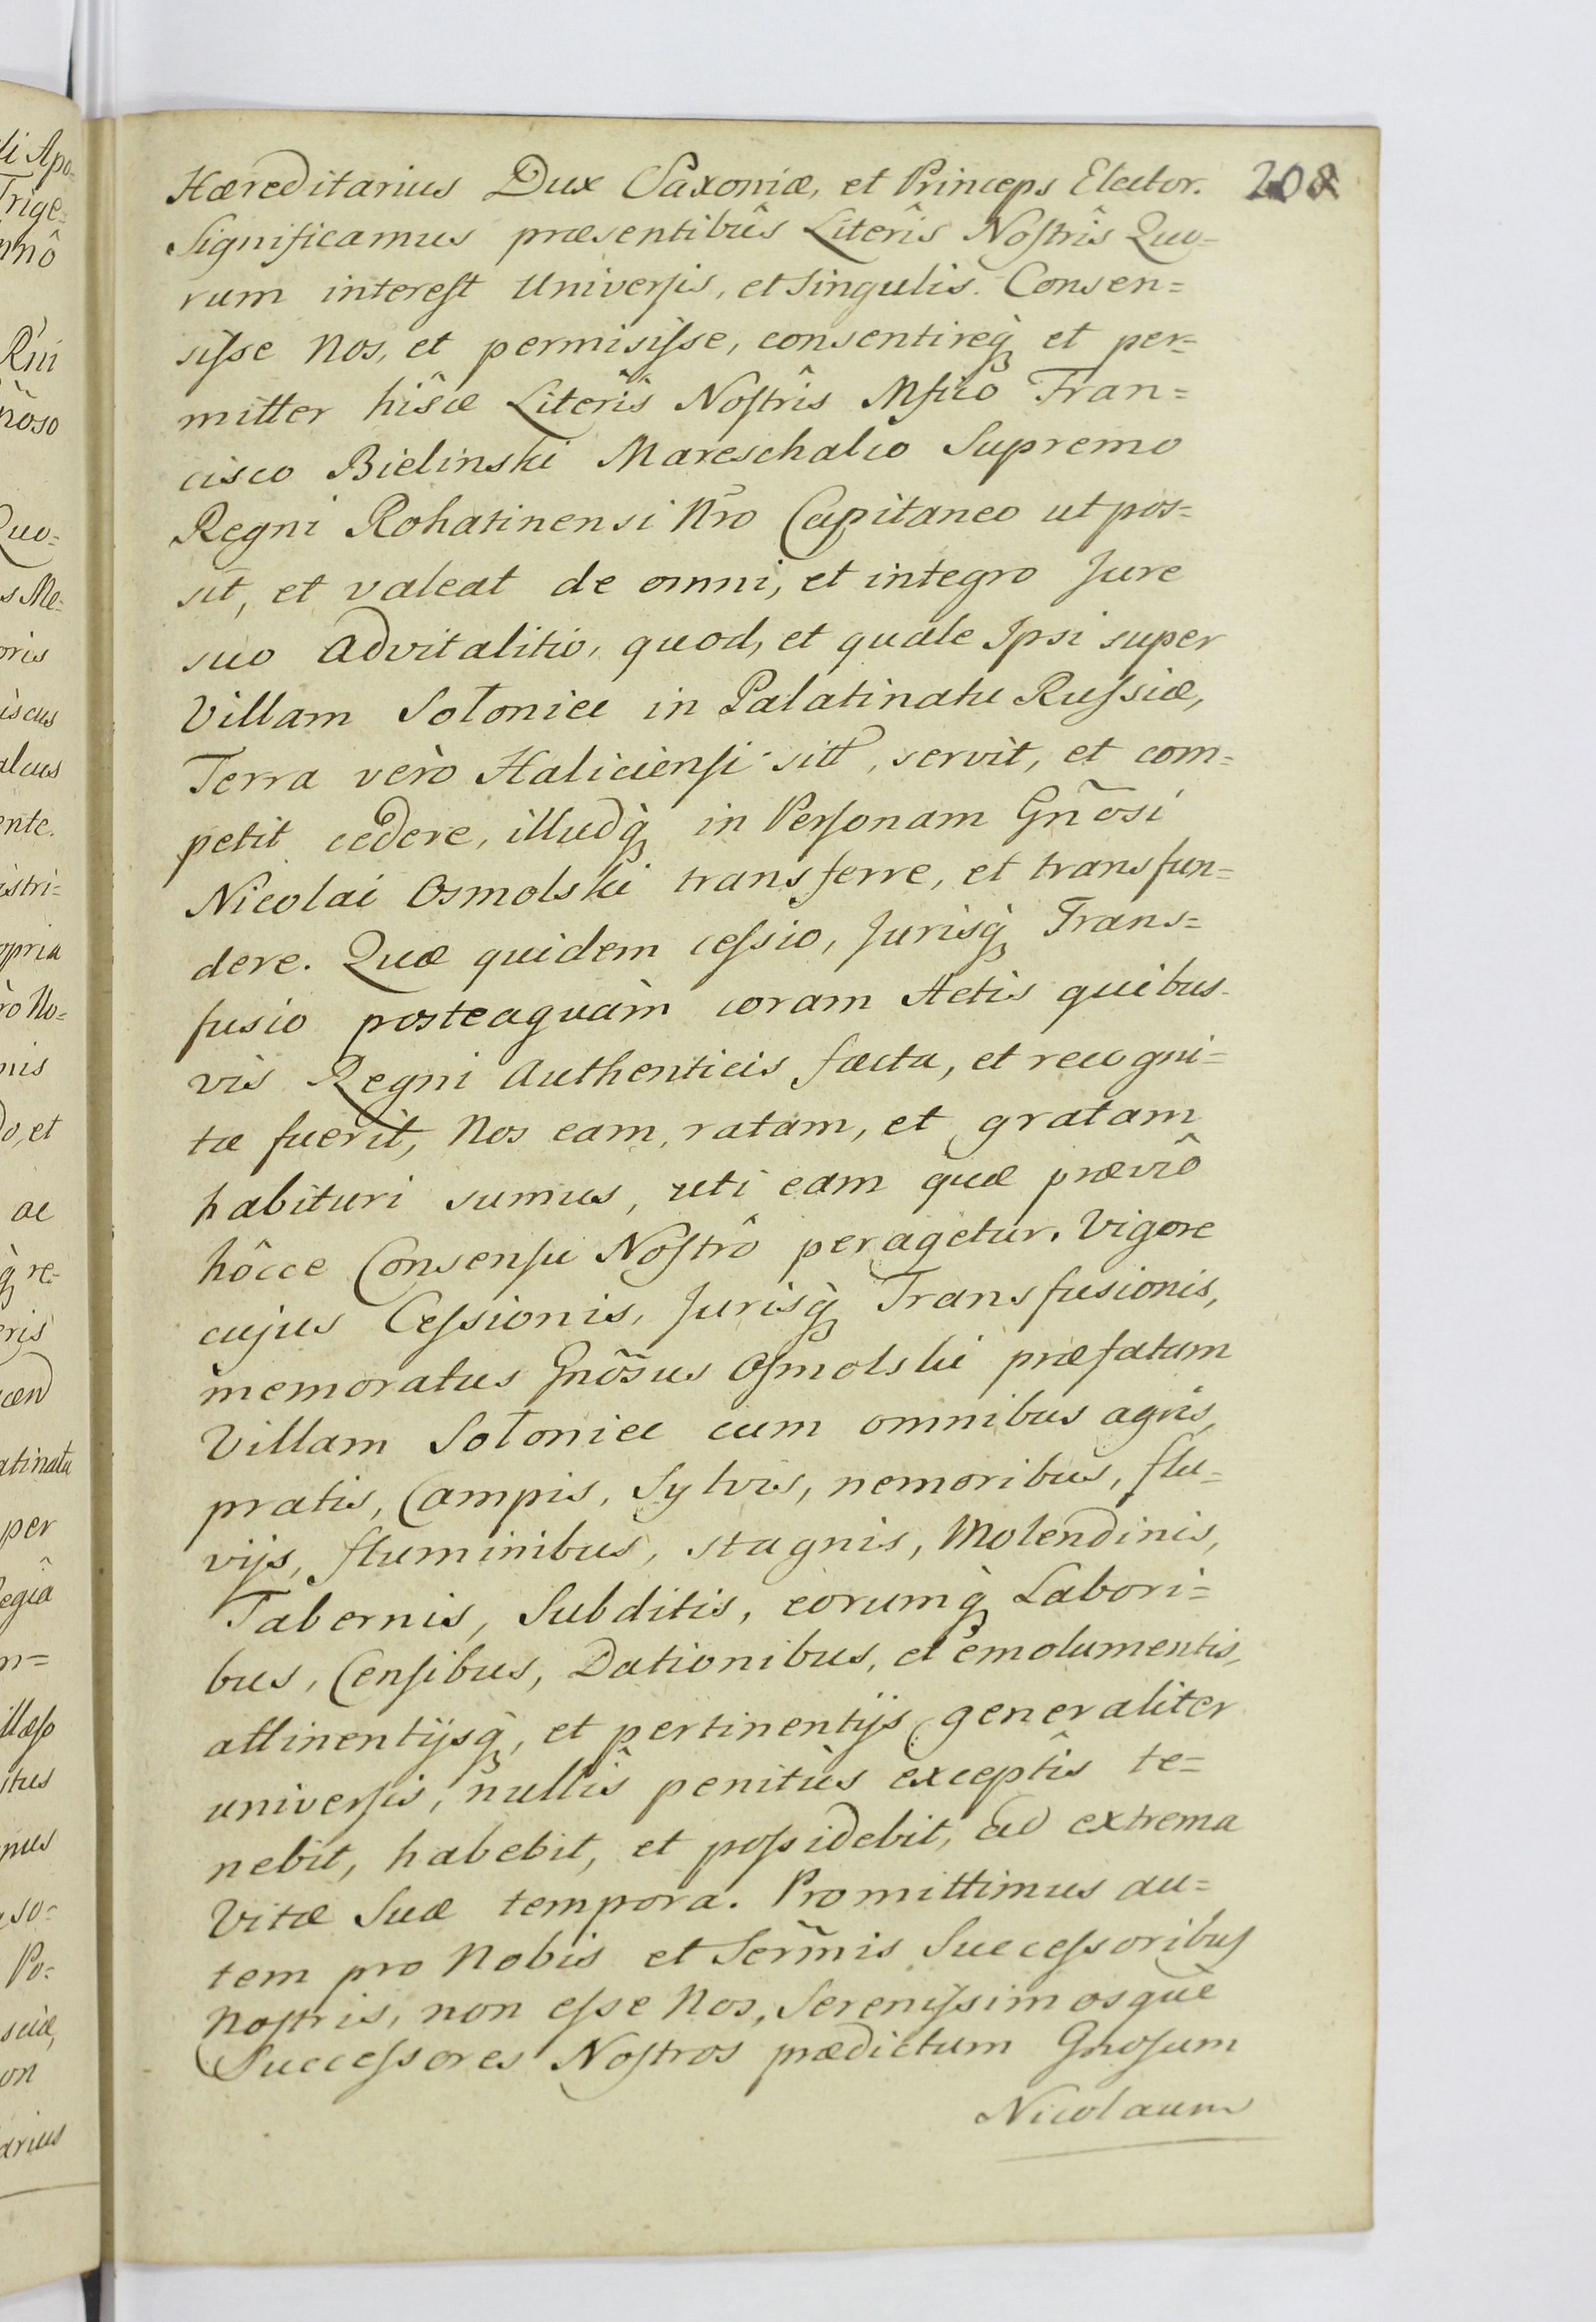 Hæreditarius Dux Saxoniæ, et Princeps Elector. 208
Significamus præsentibûs Literîs Noſtrîs Quo=
rum intereſt Univerſis, et Singulis. Consen=
siſse Nos, et permisiſse, consentireq̀ et per=
mitter hîsce Literîs Noſtrîs Mfico Fran=
cisco Bielinski Mareschalco Supremo
Regni Rohatinensi Nr̃o Capitaneo ut pos=
sit, et valeat de omni, et integro Jure
suo advitalitio, quod, et quale Ipsi super
Villam Sołoniec in Palatinatu Ruſsiæ,
Terra verò Haliciensi sitt, servit, et com=
petit cedere, illudq̀ in Perſonam Gñosi
Nicolai Osmolski transferre, et transfun=
dere. Quæ quidem ceſsio, Jurisq̀ Trans=
fusio posteaquàm coram Actis quibus-
vis Regni Authenticis facta, et recogni=
ta fuerit, Nos eam, ratam, et gratam
habituri sumus, uti eam quæ præviô
hôcce Consenſu Noſtrô peragetur. Vigore
cujus Ceſsionis, Jurisq̀ Transfusionis,
memoratus Gnõsus Oſmolski præfatam
Villam Sołoniec cum omnibus agris,
pratis, Campis, Sylvis, nemoribus, flu=
vijs, fluminibus, stagnis, Molendinis,
Tabernis, Subditis, eorumq̀ Labori=
bus, Censibus, Dationibus, et emolumentis,
attinentijsq̀, et pertinentijs generaliter
univerſis, nullîs penitùs exceptîs te=
nebit, habebit, et poſsidebit, ad extrema
Vitæ Suæ tempora. Promittimus au=
tem pro Nobis et Ser̃mis Succeſsoribus
Noſtris, non eſse Nos, Sereniſsimosque
Succeſsores Noſtros prædictum Gnoſum
Nicolaum